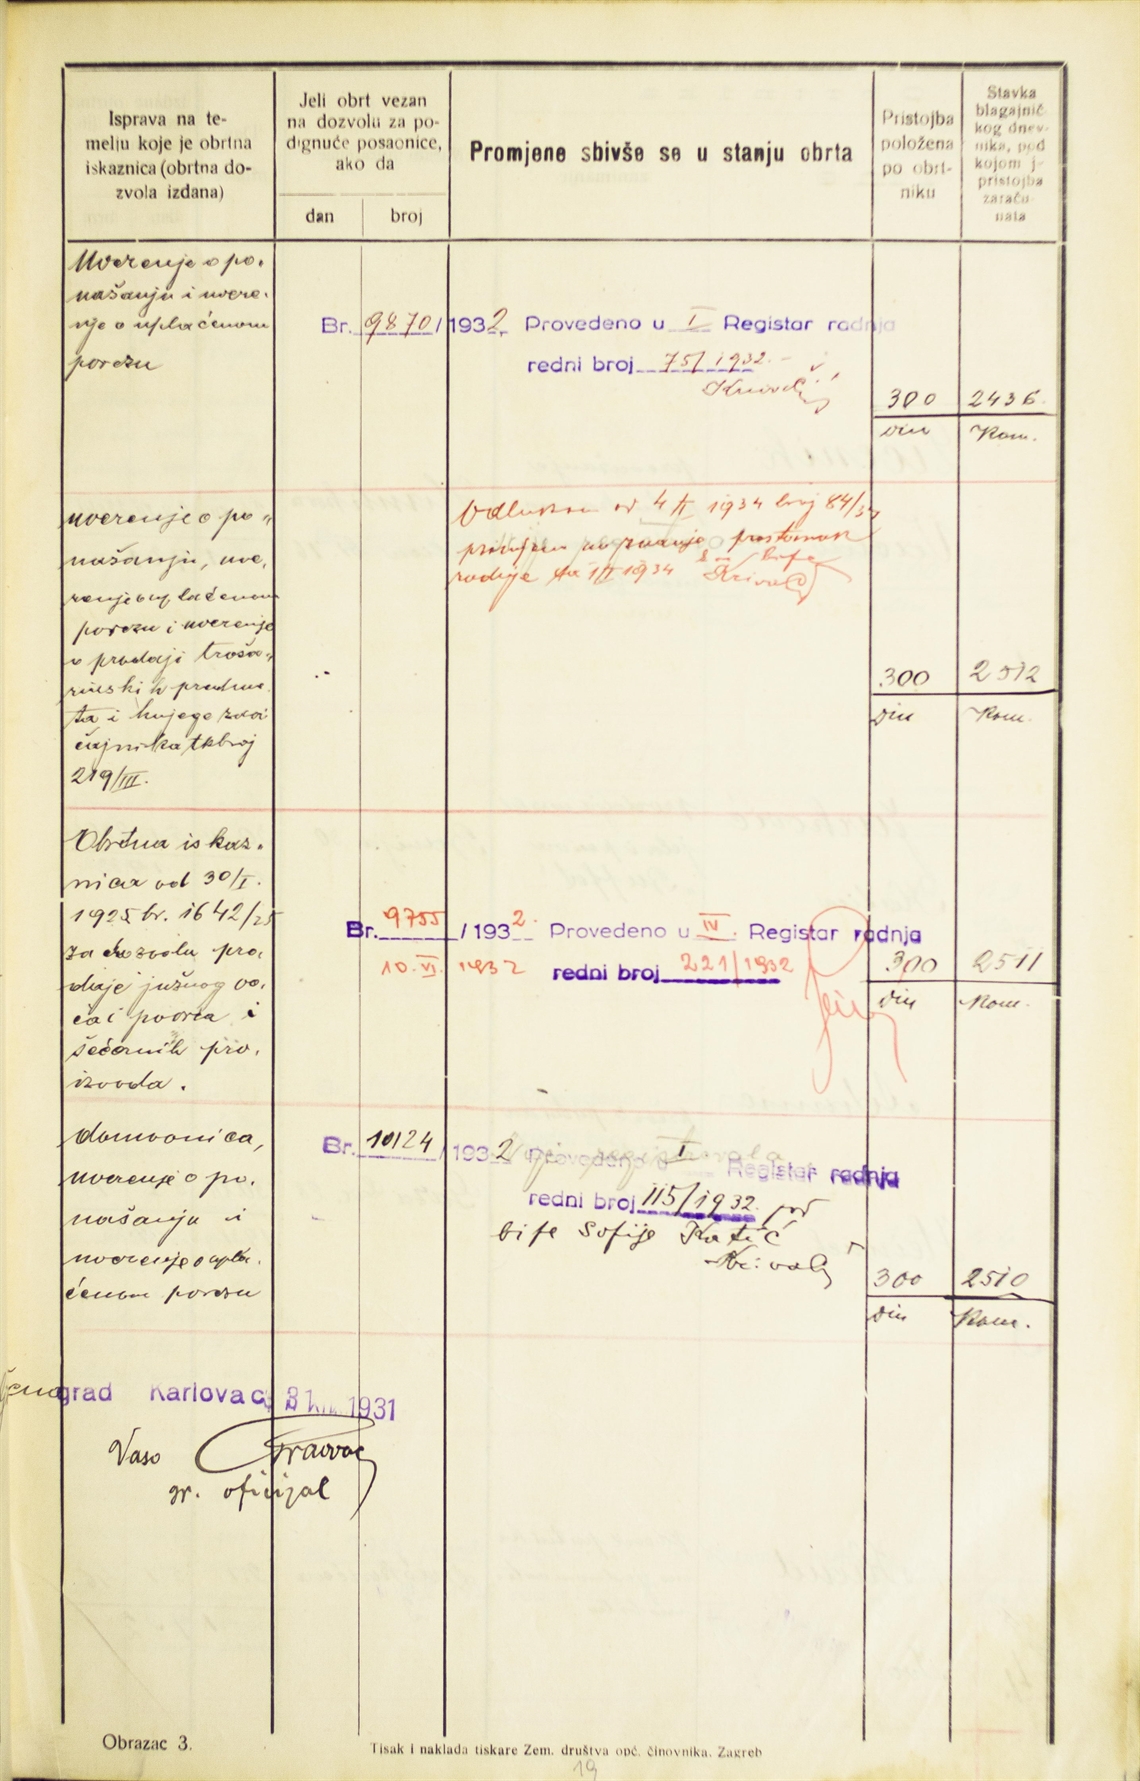 Isprava na te-
melju koje je obrtna
iskaznica (obrtna do-
zvola izdana)
Jeli obrt vezan
na dozvolu za po-
dignuće posaonice,
ako da
dan
broj
Promjene sbivše se u stanju obrta
Pristojba
položena
po obrt-
niku
Stavka
blagajnič
kog dnev-
nika, pod
kojom j-
pristojba
zaraču-
nata
Uverenje o po-
našanju i uvere-
nje o uplaćenom
porezu
Br. 9870/1932 Provedeno u I Registar radnja
redni broj 75/1932.
300 2436.
din Kom.
uverenje o po-
našanju, uve-
renje o uplaćenom
porezu i uverenje
o prodaji troša-
rinskih predme-
ta i
219/III.
Odlukom od 4/II 1934 broj 84/34
radije 1934
300 2512
din Kom.
Obrtna iskaz-
nica od 30/I.
1925 br. 1642/25
za dozvolu pro-
daje južnog vo-
ća i povrća i
šećernih pro-
izvoda.
Br. 9755 /1932. Provedeno u IV. Registar radnja
10. VI. 1932 redni broj 221/1932
300 2511
din Kom.
domovnica,
uverenje o po-
našanju i
uverenje o upla-
ćenom porezu
Br. 10124/1932 Provedeno u I Registar radnja
redni broj 115/1932. pod
bife Sofije Katić
300 2510
din Kom.
grad Karlovac, 1931
Vaso
gr. oficijal
Obrazac 3.
Tisak i naklada tiskare Zem. društva opć. činovnika, Zagreb
19